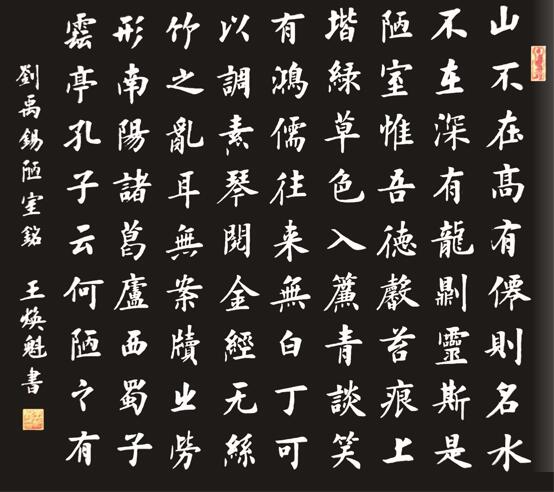 山不在高有僊則名水
不在深有龍則靈斯是
陋室惟吾德馨苔痕上
堦緑草色入簾青談笑
有鴻儒往来無白丁可
以調素琴閱金經无絲
竹之亂耳無案牘之勞
形南陽諸葛廬西蜀子
雲亭孔子云何陋之有
劉禹錫陋室銘 王煥魁書